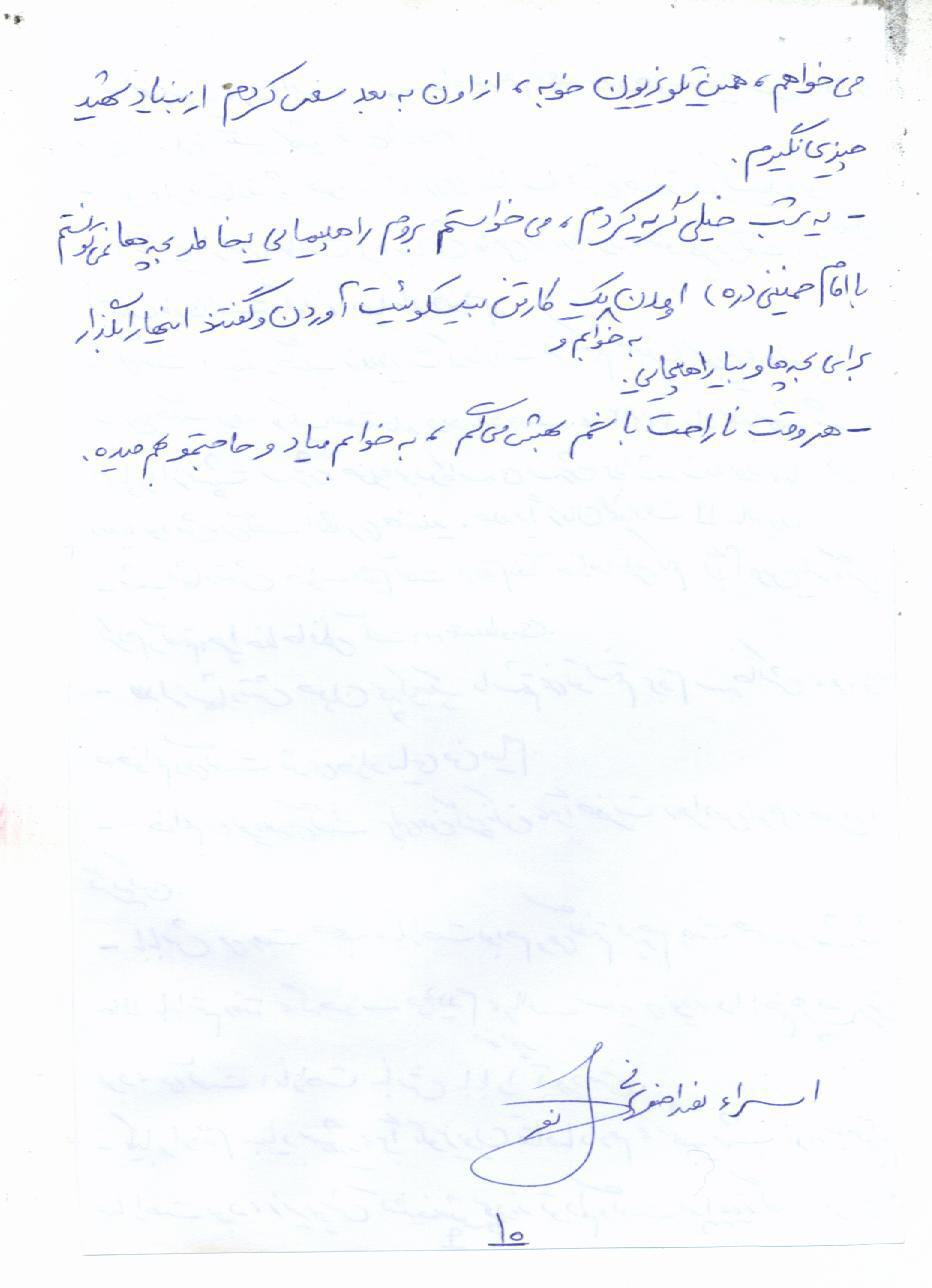 می‌خواهم، همین تلویزیون خوبه، از اون به بعد سعی کردم از بنیاد شهید
چیزی نگیرم.
- یه شب خیلی گریه کردم، می‌خواستم بروم راهپیمایی بخاطر بچه‌ها نمی‌تونستم
با امام خمینی (ره) اومدن به خوابم و یک کارتن بیسکوئیت آوردن و گفتند اینها را بگذار
برای بچه‌ها و بیا راهپیمایی.
- هر وقت ناراحت باشم بهش می‌گم، به خوابم میاد و حاجتمو هم میده.
اسراء
۱۰